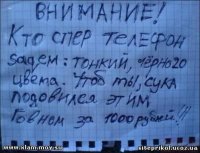 ВНИМАНИЕ!
Кто спер телефон
задем: тонкий, чёрного
цвета. Чтоб ты, сука
подовился этим
Говном за 1000 рублей!!!
www.xlam.moy.su
siteprikol.ucoz.ua